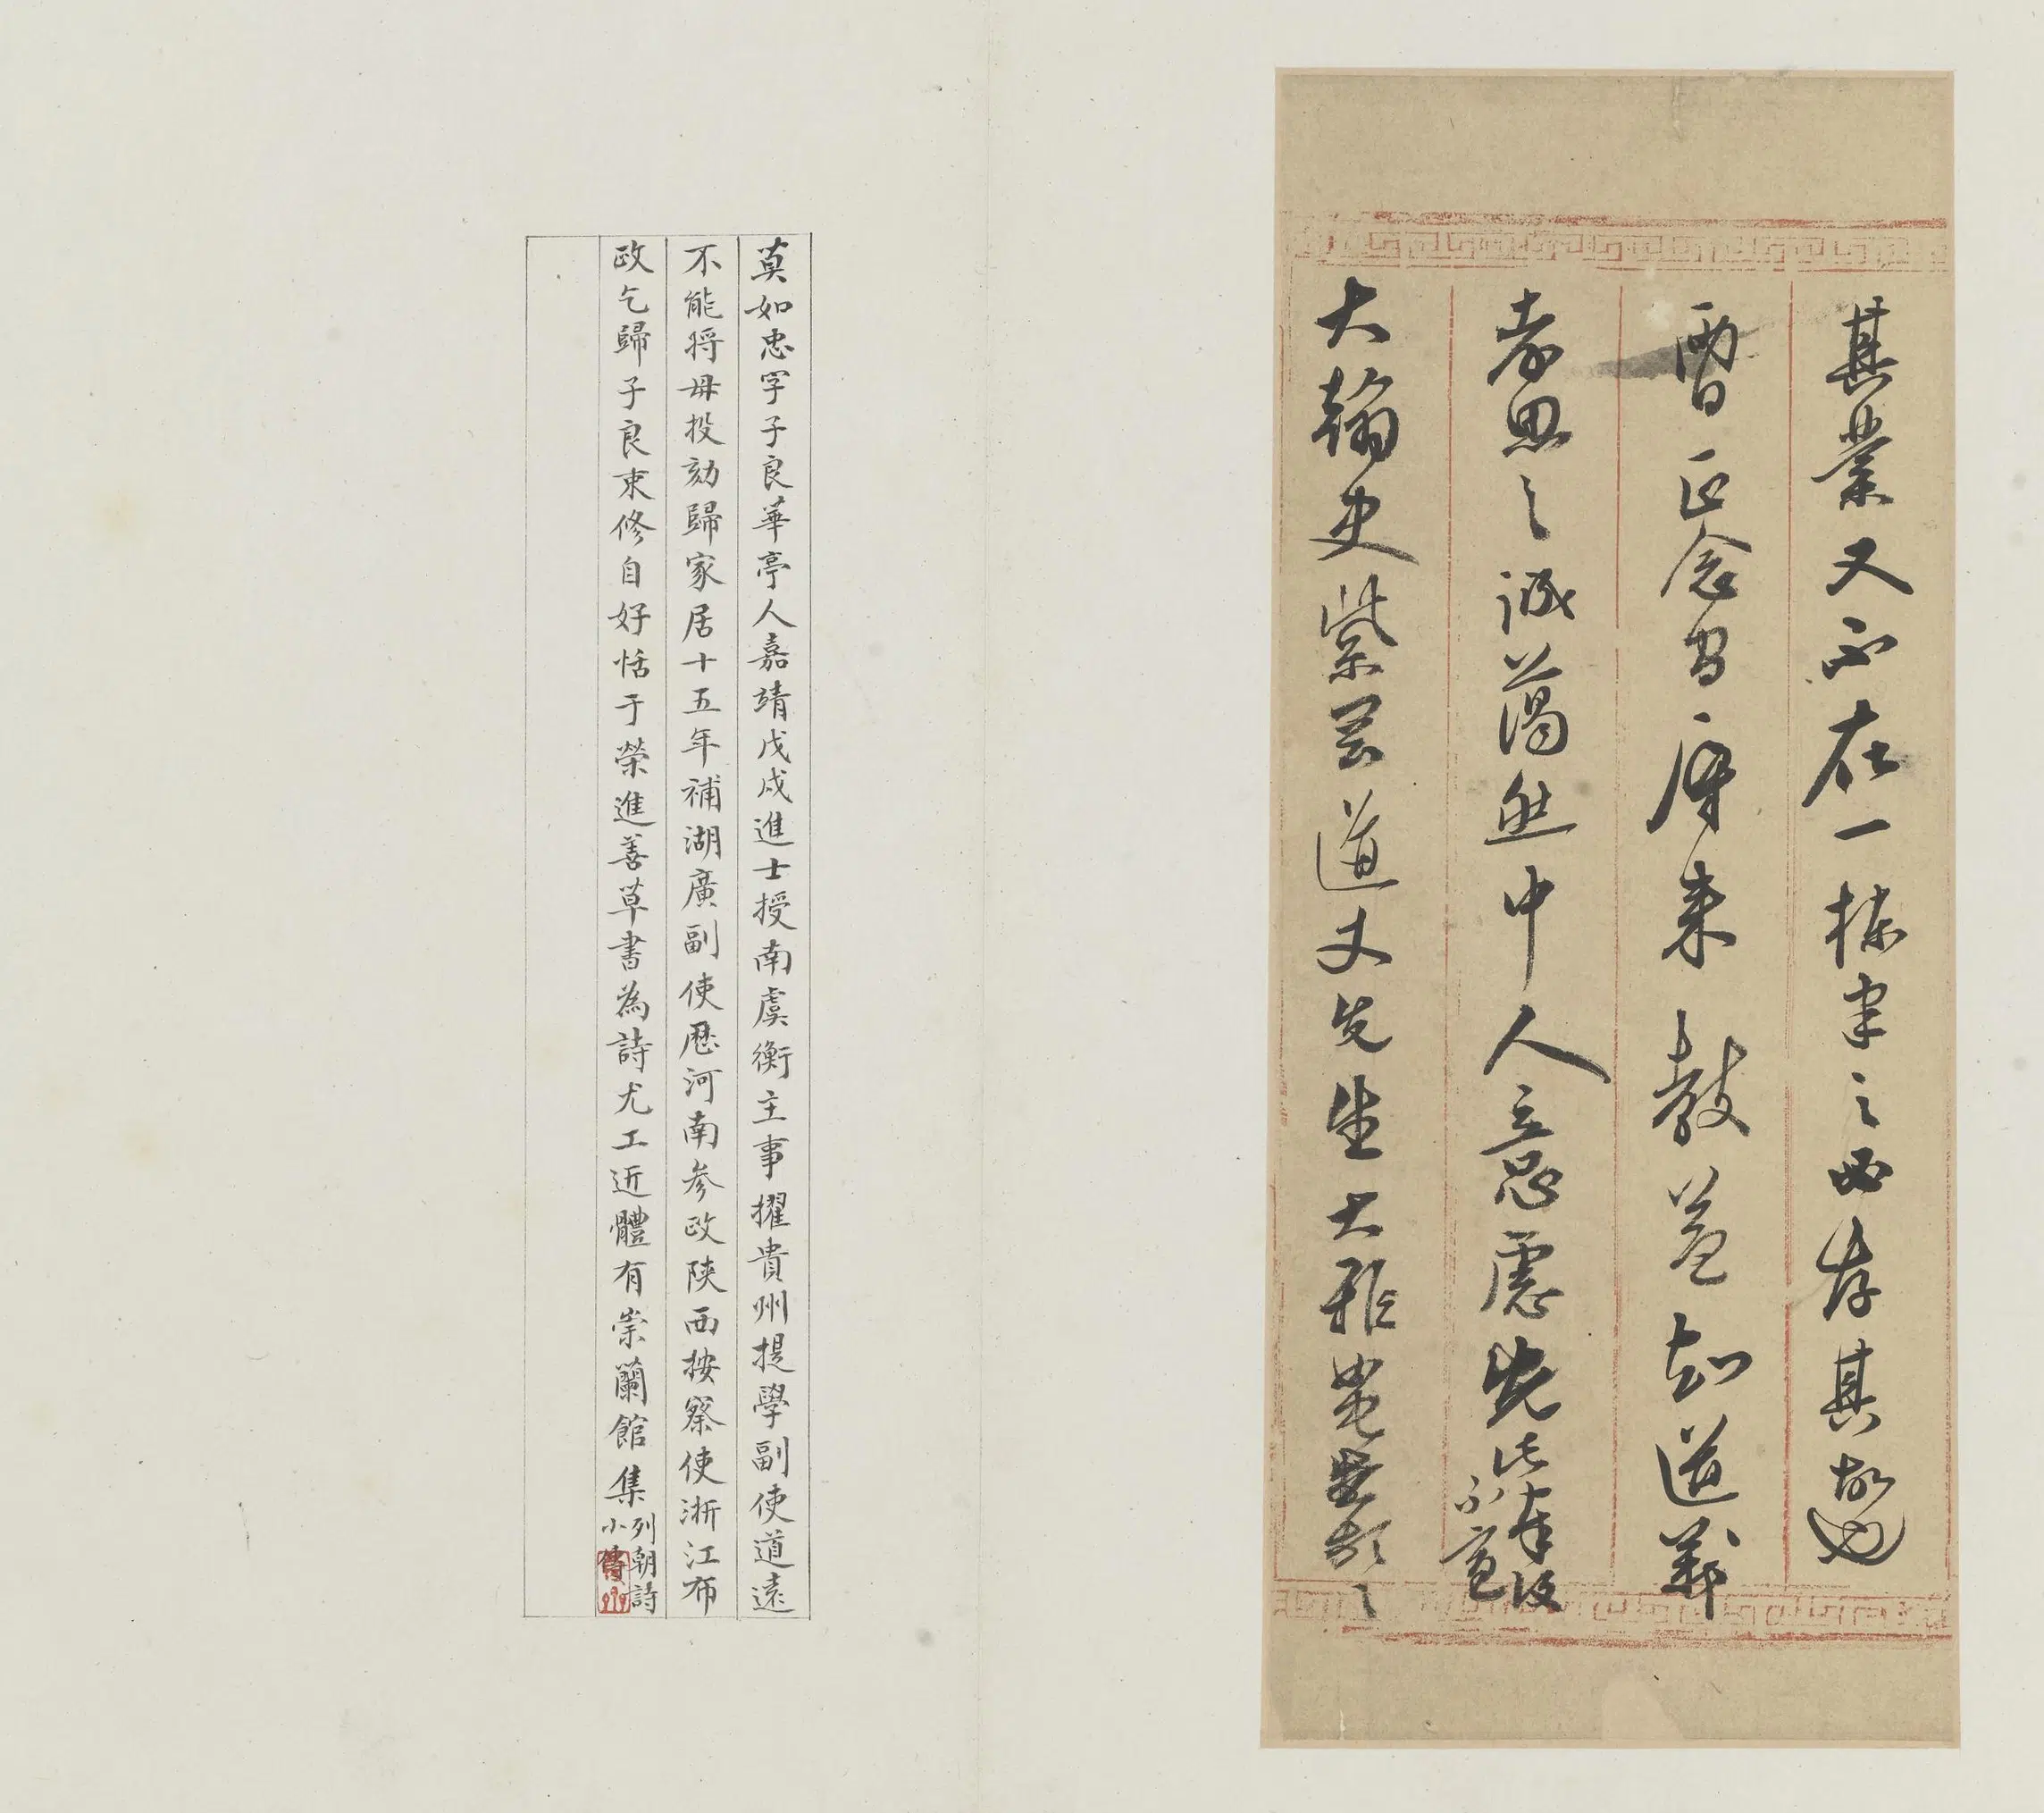 其業又不在一抹事之必存其故也
曹正念間序來教益知道義
孝思之誠藹然中人意慮先此奉復
不宣
大翰史紫岡道丈先生大雅
莫如忠字子良華亭人嘉靖戊戌進士授南虞衡主事擢貴州提學副使道遠
不能將母投劾歸家居十五年補湖廣副使歷河南參政陝西按察使浙江布
政乞歸子良束修自好恬于榮進善草書為詩尤工近體有崇蘭館集
列朝詩
小傳